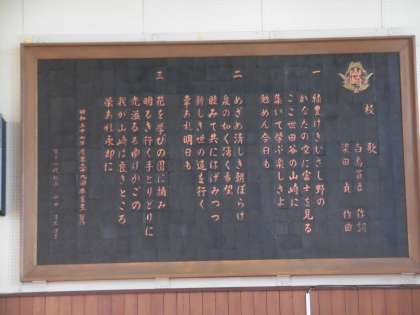 校歌
白鳥省吾 作詞
梁田貞 作曲
一 稔豊けきむさし野の
かなたの空に富士を見る
ここ世田谷の山崎に
集いて学ぶ楽しさよ
勉めん今日も
二 めざめ清しき朝ぼらけ
泉の如く清く希望
睦みて共にはげみつつ
新しき世の道を行く
幸あれ明日も
三 花を学びの園に摘み
明るき行く手とりどりに
光溢るるゆりかごの
我が山崎は良きところ
栄あれ永遠に